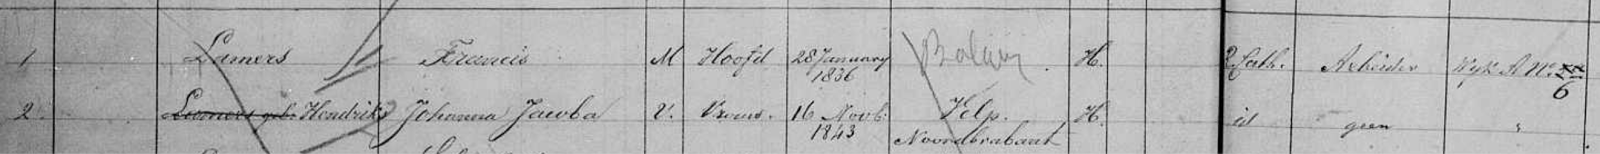 1 Lamers Francis M Hoofd 28 January 1836 H. R Cath. Arbeider Wyk A No 6
2 Lamers geb. Hendriks Johanna Jacoba V. Vrouw. 16 Novb. 1843 Velp. Noordbrabant H. id geen "